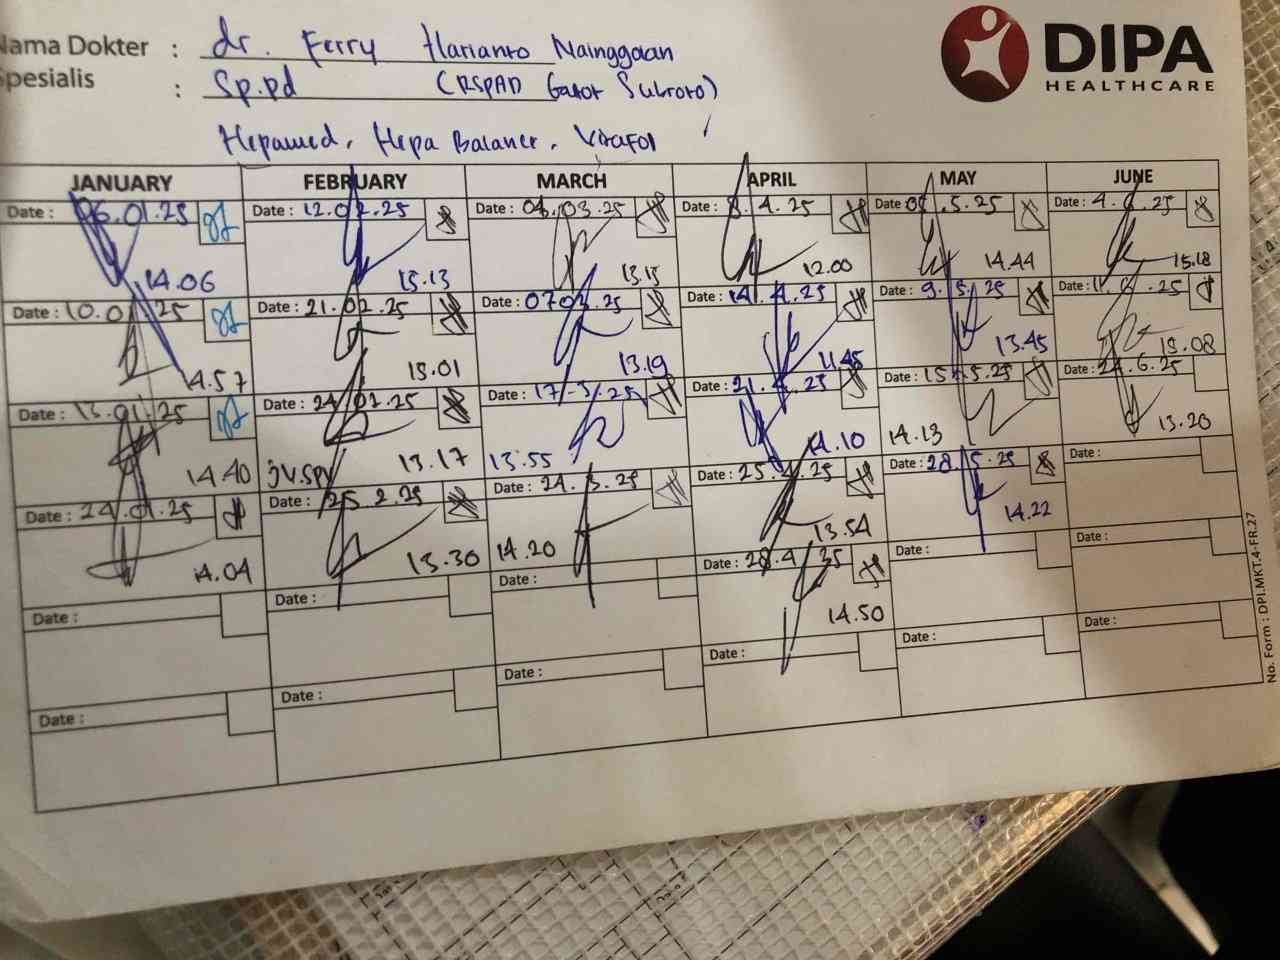 Nama Dokter : dr. Ferry Harianto Nainggolan
Spesialis : Sp.pd (RSPAD Gatot Subroto)
Hepamed, Hepa Balance, Virafol
DIPA
HEALTHCARE
JANUARY FEBRUARY MARCH APRIL MAY JUNE
Date : 06.01.25 Date : 12.02.25 Date : 04.03.25 Date : 8.4.25 Date : .5.25 Date : 4.6.25
14.06 13.13 13.15 12.00 14.44 15.18
Date : 10.01.25 Date : 21.02.25 Date : 07.03.25 Date : 14.4.25 Date : 9.5.25 Date : 11.6.25
14.57 13.01 13.19 11.45 13.45 13.08
Date : 13.01.25 Date : 24.02.25 Date : 17-3-25 Date : 21.4.25 Date : 15.5.25 Date : 24.6.25
14.40 JV.SPV 13.17 13.55 14.10 14.13 13.20
Date : 24.01.25 Date : 25.2.25 Date : 24.3.25 Date : 25.4.25 Date : 28.5.25 Date :
14.04 13.30 14.20 13.54 14.22
Date : Date : Date : Date : 28.4.25 Date : Date :
14.50
Date : Date : Date : Date : Date : Date :
No. Form : DPI.MKT.4-FR.27